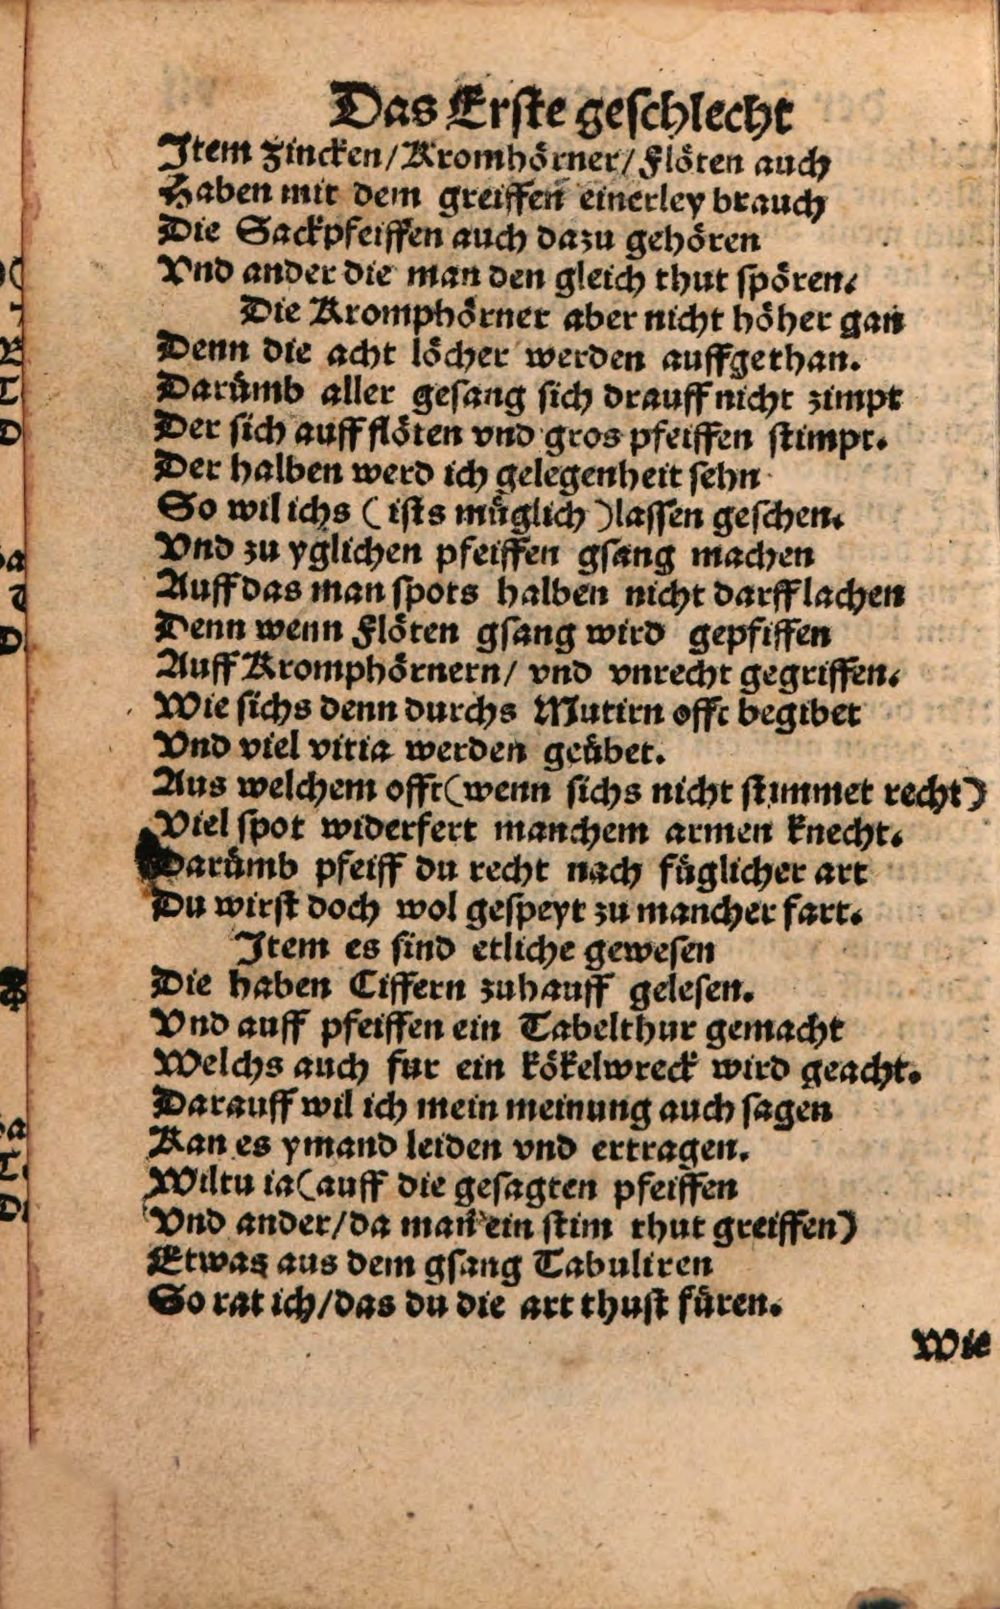 Das Erste geschlecht
Item Zincken/Kromhörner/Flöten auch
Haben mit dem greiffen einerley brauch
Die Sackpfeiffen auch dazu gehören
Vnd ander die man den gleich thut spören.
Die Kromphörner aber nicht höher gan
Denn die acht löcher werden auffgethan.
Darümb aller gesang sich drauff nicht zimpt
Der sich auff flöten vnd gros pfeiffen stimpt.
Der halben werd ich gelegenheit sehn
So wil ichs (ists müglich) lassen geschen.
Vnd zu yglichen pfeiffen gsang machen
Auff das man spots halben nicht darff lachen
Denn wenn Flöten gsang wird gepfiffen
Auff Kromphörnern/ vnd vnrecht gegriffen.
Wie sichs denn durchs Mutirn offt begibet
Vnd viel vitia werden geübet.
Aus welchem offt (wenn sichs nicht stimmet recht)
Viel spot widerfert manchem armen knecht.
Darümb pfeiff du recht nach füglicher art
Du wirst doch wol gespeyt zu mancher fart.
Item es sind etliche gewesen
Die haben Ciffern zuhauff gelesen.
Vnd auff pfeiffen ein Tabelthur gemacht
Welchs auch fur ein kökelwreck wird geacht.
Darauff wil ich mein meinung auch sagen
Kan es ymand leiden vnd ertragen.
Wiltu ia (auff die gesagten pfeiffen
Vnd ander/da man ein stim thut greiffen)
Etwas aus dem gsang Tabuliren
So rat ich/das du die art thust füren.
Wie